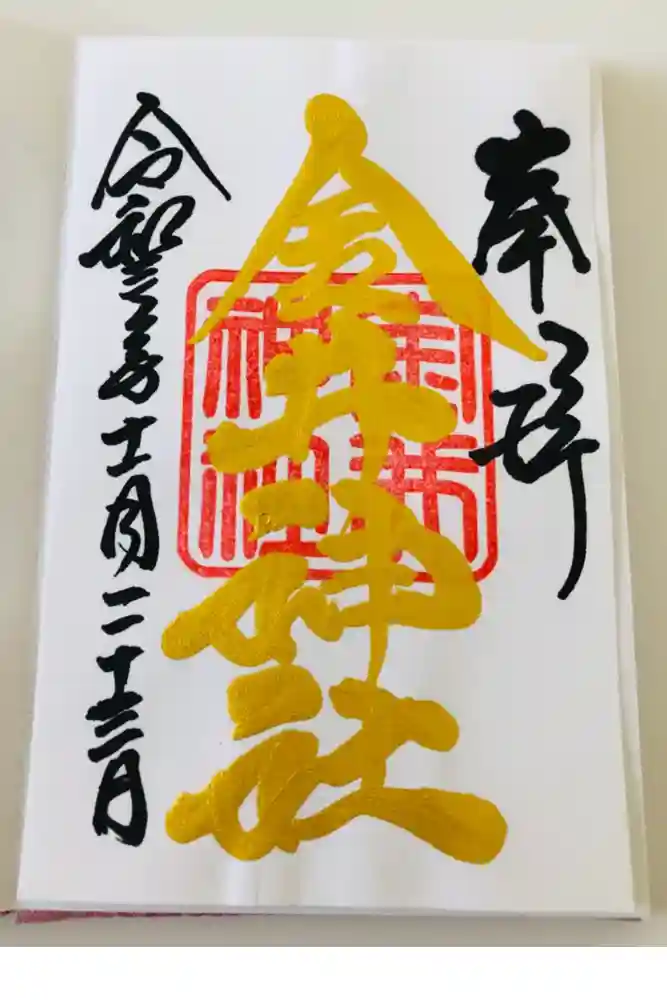 奉拝
金井神社
金井
神社
令和三年十一月二十三日